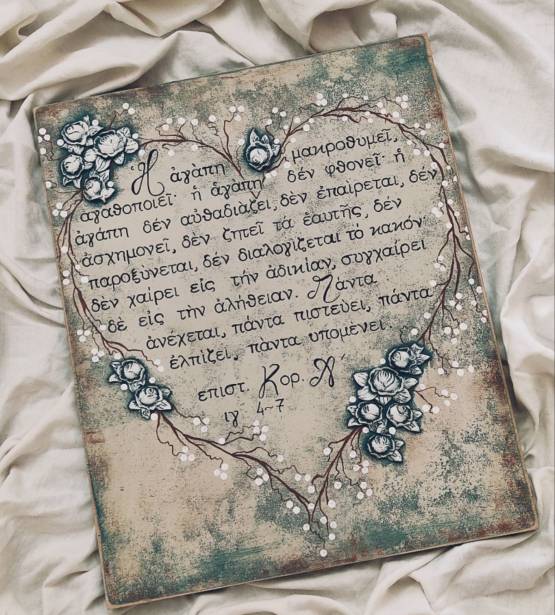 Ἡ ἀγάπη μακροθυμεῖ,
ἀγαθοποιεῖ· ἡ ἀγάπη δέν φθονεῖ· ἡ
ἀγάπη δέν αὐθαδιάζει, δέν ἐπαίρεται, δέν
ἀσχημονεῖ, δέν ζητεῖ τά ἑαυτῆς, δέν
παροξύνεται, δέν διαλογίζεται τό κακόν·
δέν χαίρει εἰς τήν ἀδικίαν, συγχαίρει
δέ εἰς τήν ἀλήθειαν. Πάντα
ἀνέχεται, πάντα πιστεύει, πάντα
ἐλπίζει, πάντα υπομένει.
επιστ. Κορ. Α΄
ιγ 4~7